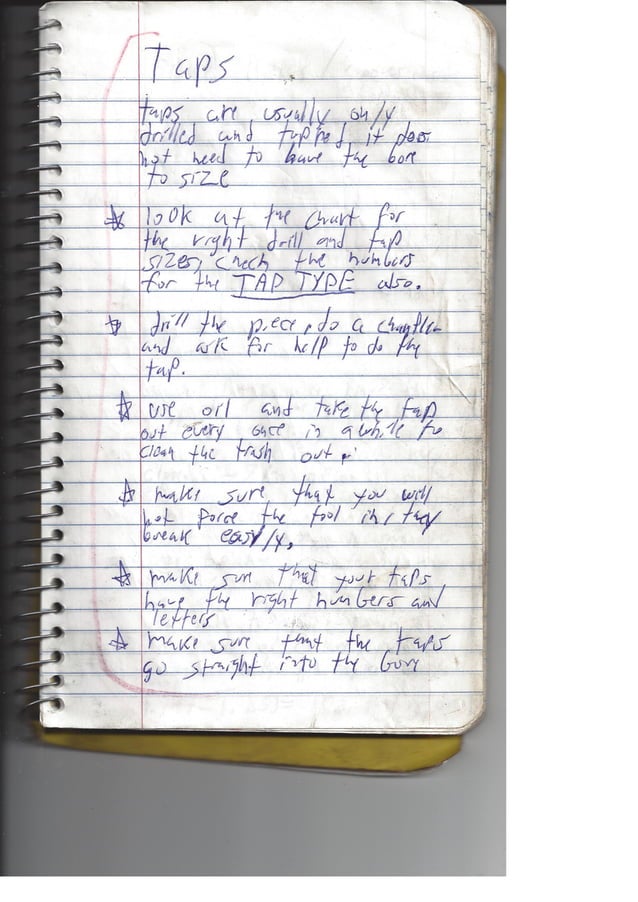 Taps
taps are usually only
drilled and tapped, it does
not need to have the bore
to size
look at the chart for
the right drill and tap
sizes, check the numbers
for the TAP TYPE also.
drill the piece, do a
and ask for help to do the
tap.
use oil and take the tap
out every once in a while to
clean the trash out.
make sure that you will
not force the tool in, they
break easy/y,
make sure that your taps
have the right numbers and
letters
make sure that the taps
go straight into the bore